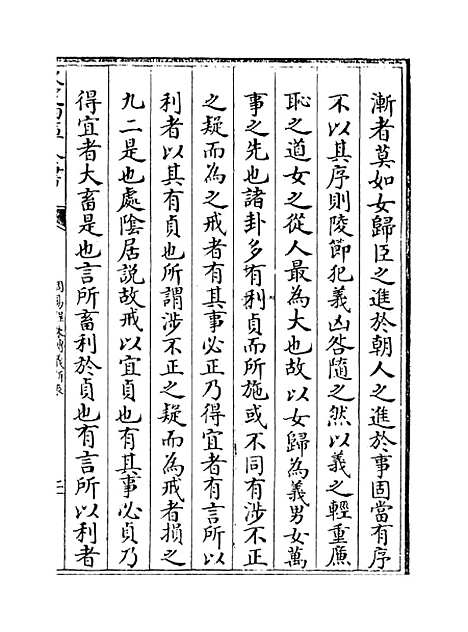 漸者莫如女歸臣之進於朝人之進於事固當有序
不以其序則陵節犯義凶咎隨之然以義之輕重廉
恥之道女之從人最為大也故以女歸為義男女萬
事之先也諸卦多有利貞而所施或不同有涉不正
之疑而為之戒者有其事必正乃得宜者有言所以
利者以其有貞也所謂涉不正之疑而為戒者損之
九二是也處陰居説故戒以宜貞也有其事必貞乃
得宜者大畜是也言所畜利於貞也有言所以利者
周易程朱傳義折衷